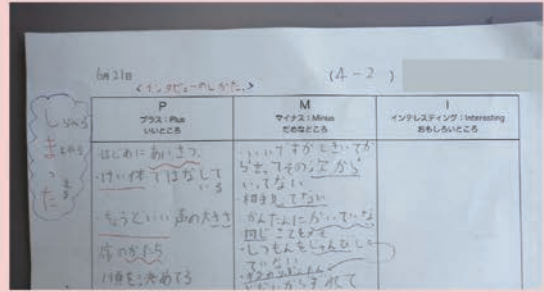 6月21日
<インタビューのしかた>
(4-2 )
しらべる
まとめる
った
P
プラス:Plus
いいところ
M
マイナス:Minus
だめなところ
I
インテレスティング:Interesting
おもしろいところ
はじめにあいさつ。
・けい体ではなして
いる
・ちょうどいい声の大きさ
体のかたち
順を決めてる
・いいですかときいてか
その次から
いってない
・相手見てない
かんたんにかいていな
同じことも
・しつもんをじゅんび
ていない